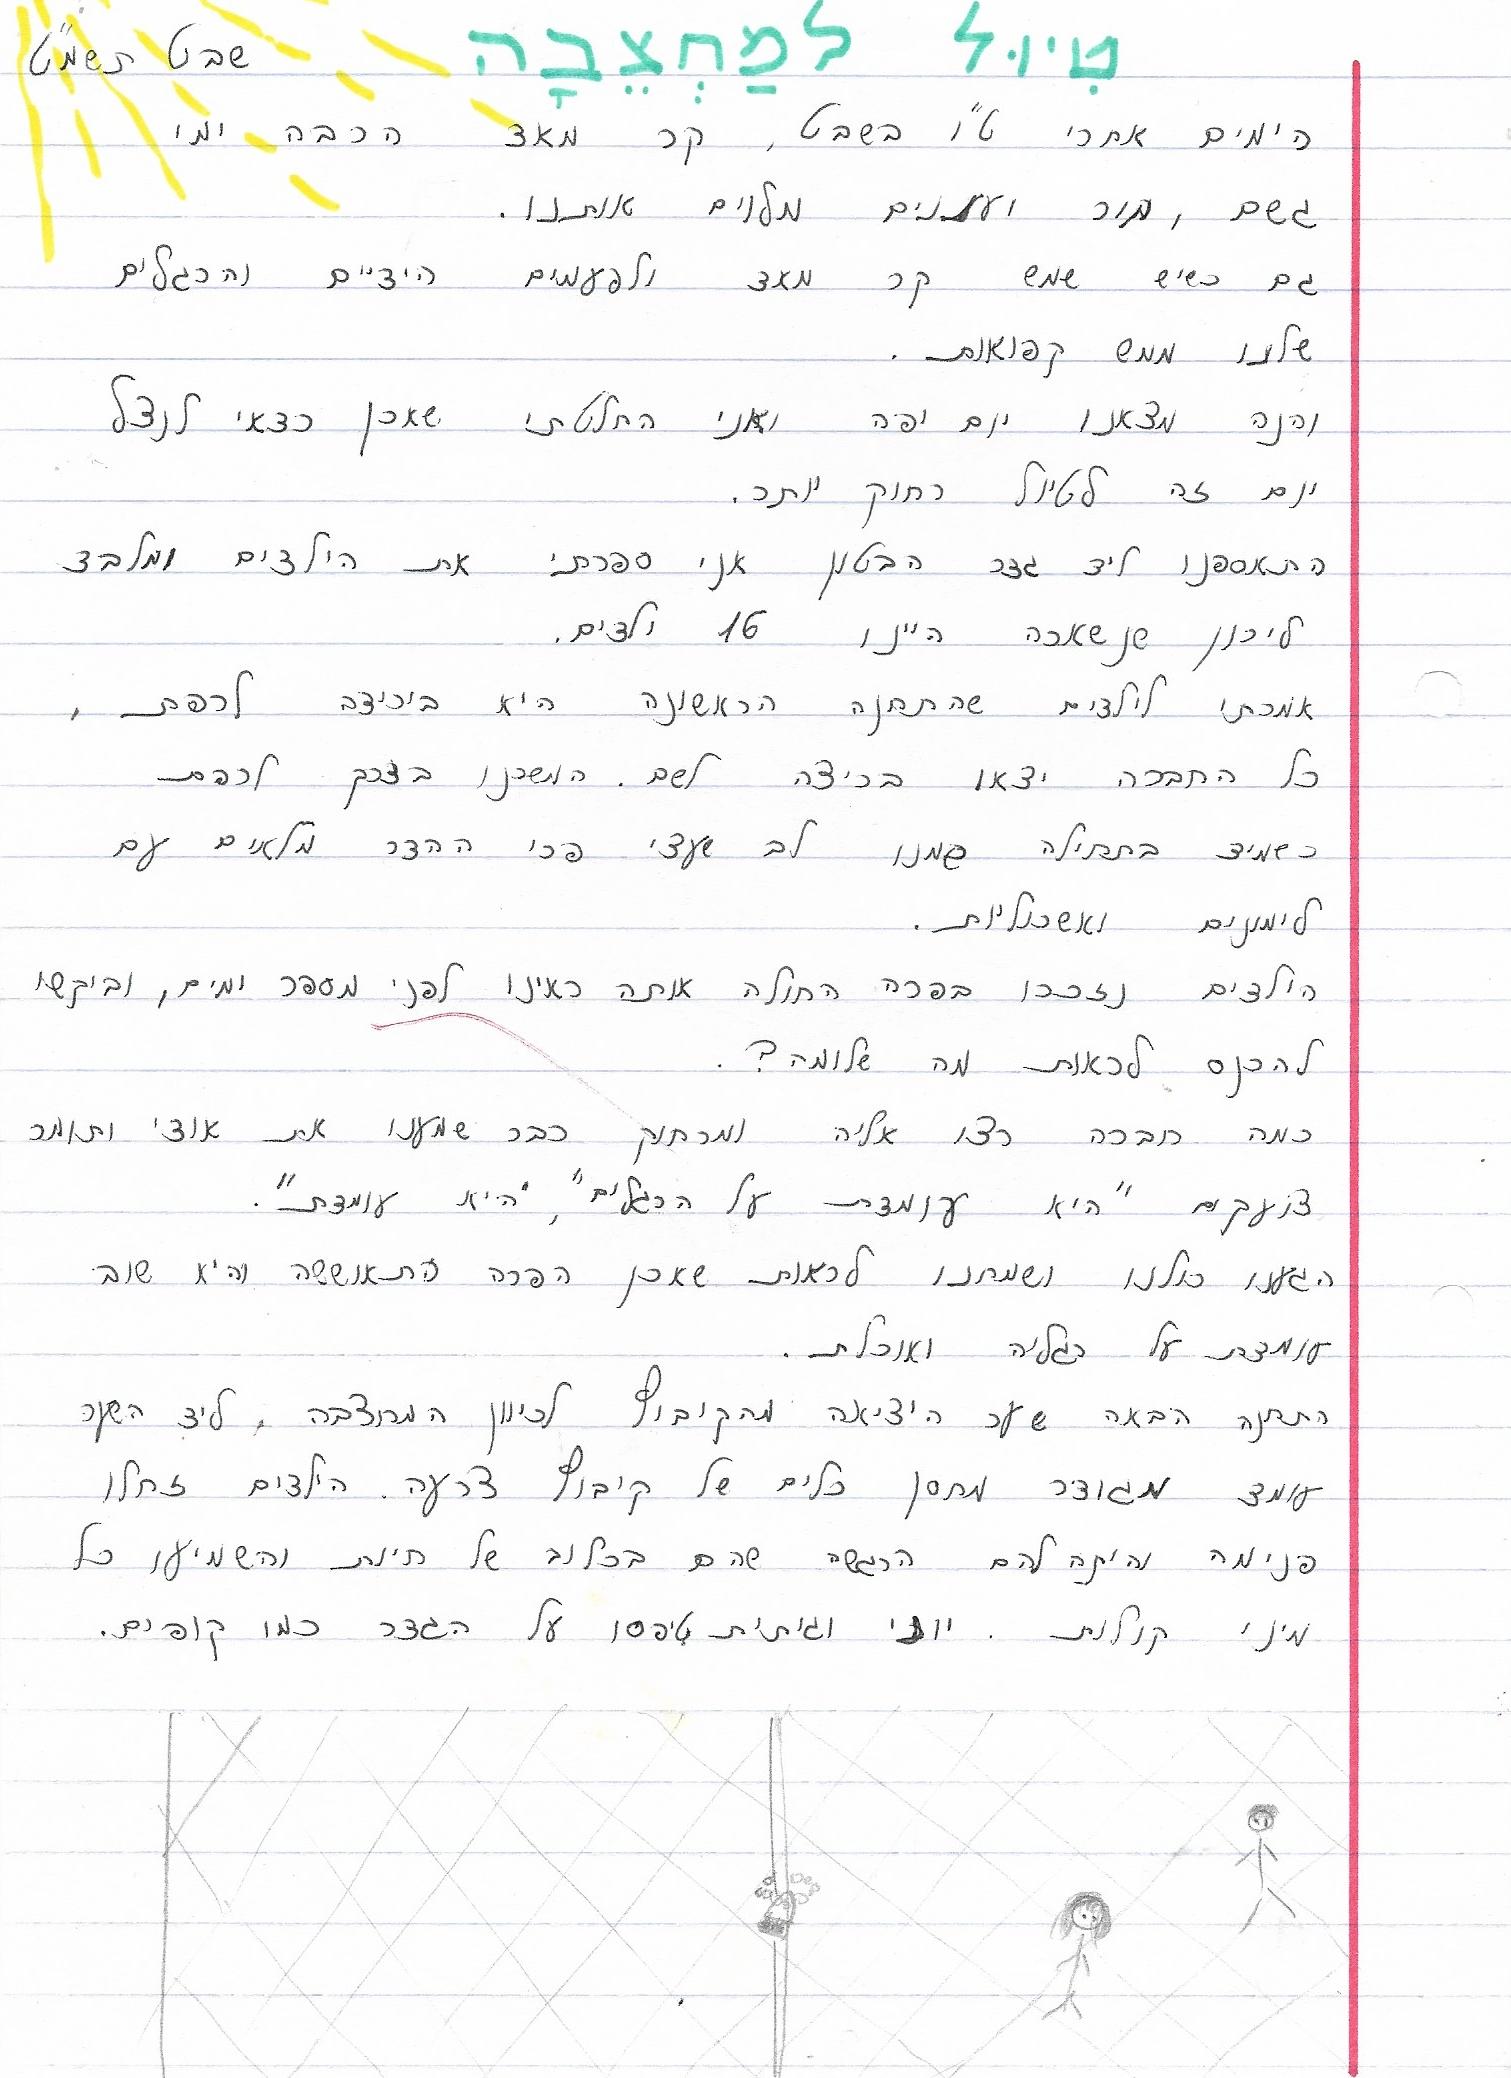 טִיוּל לַמַּחְצֵבָה
שבט תשמ"ט
הימים אחרי ט"ו בשבט, קר מאד הרבה ימי
גשם, קור ועננים מלווים אותנו.
גם כשיש שמש קר מאד ולפעמים הידיים והרגלים
שלנו ממש קפואות.
והנה מצאנו יום יפה ואני החלטתי שאכן כדאי לנצל
יום זה לטיול רחוק יותר.
התאספנו ליד גדר הבטון אני ספרתי את הילדים ומלבד
לירון שנשארה היינו 16 ילדים.
אמרתי לילדים שהתחנה הראשונה היא ביריבה לרפת,
כל החברה יצאו בריצה לשם. המשכנו בדרך לרפת
כשמיד בתחילה שמנו לב שעצי פרי ההדר מלאים עם
לימונים ואשכוליות.
הילדים נזכרו בפרה החולה אותה ראינו לפני מספר ימים, וביקשו
להכנס לראות מה שלומה?.
כמה חברה רצו אליה ומרחוק כבר שמענו את אודי ותומר
צועקים "היא עומדת על הרגלים", "היא עומדת".
הגענו כולנו ושמחנו לראות שאכן הפרה התאוששה והיא שוב
עומדת על רגליה ואוכלת.
התחנה הבאה שער היציאה מהקיבוץ לכיוון המחצבה, ליד השער
עומד מגודר מחסן כלים של קיבוץ צרעה. הילדים זחלו
פנימה והיתה להם הרגשה שהם בכלוב של חיות והשמיעו כל
מיני קולות. וגיתית טיפסו על הגדר כמו קופים.